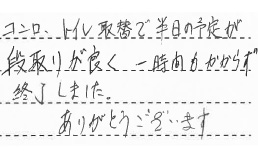 コンロ、トイレ取替で半日の予定が
段取りが良く、一時間もかからず
終了しました。
ありがとうございます